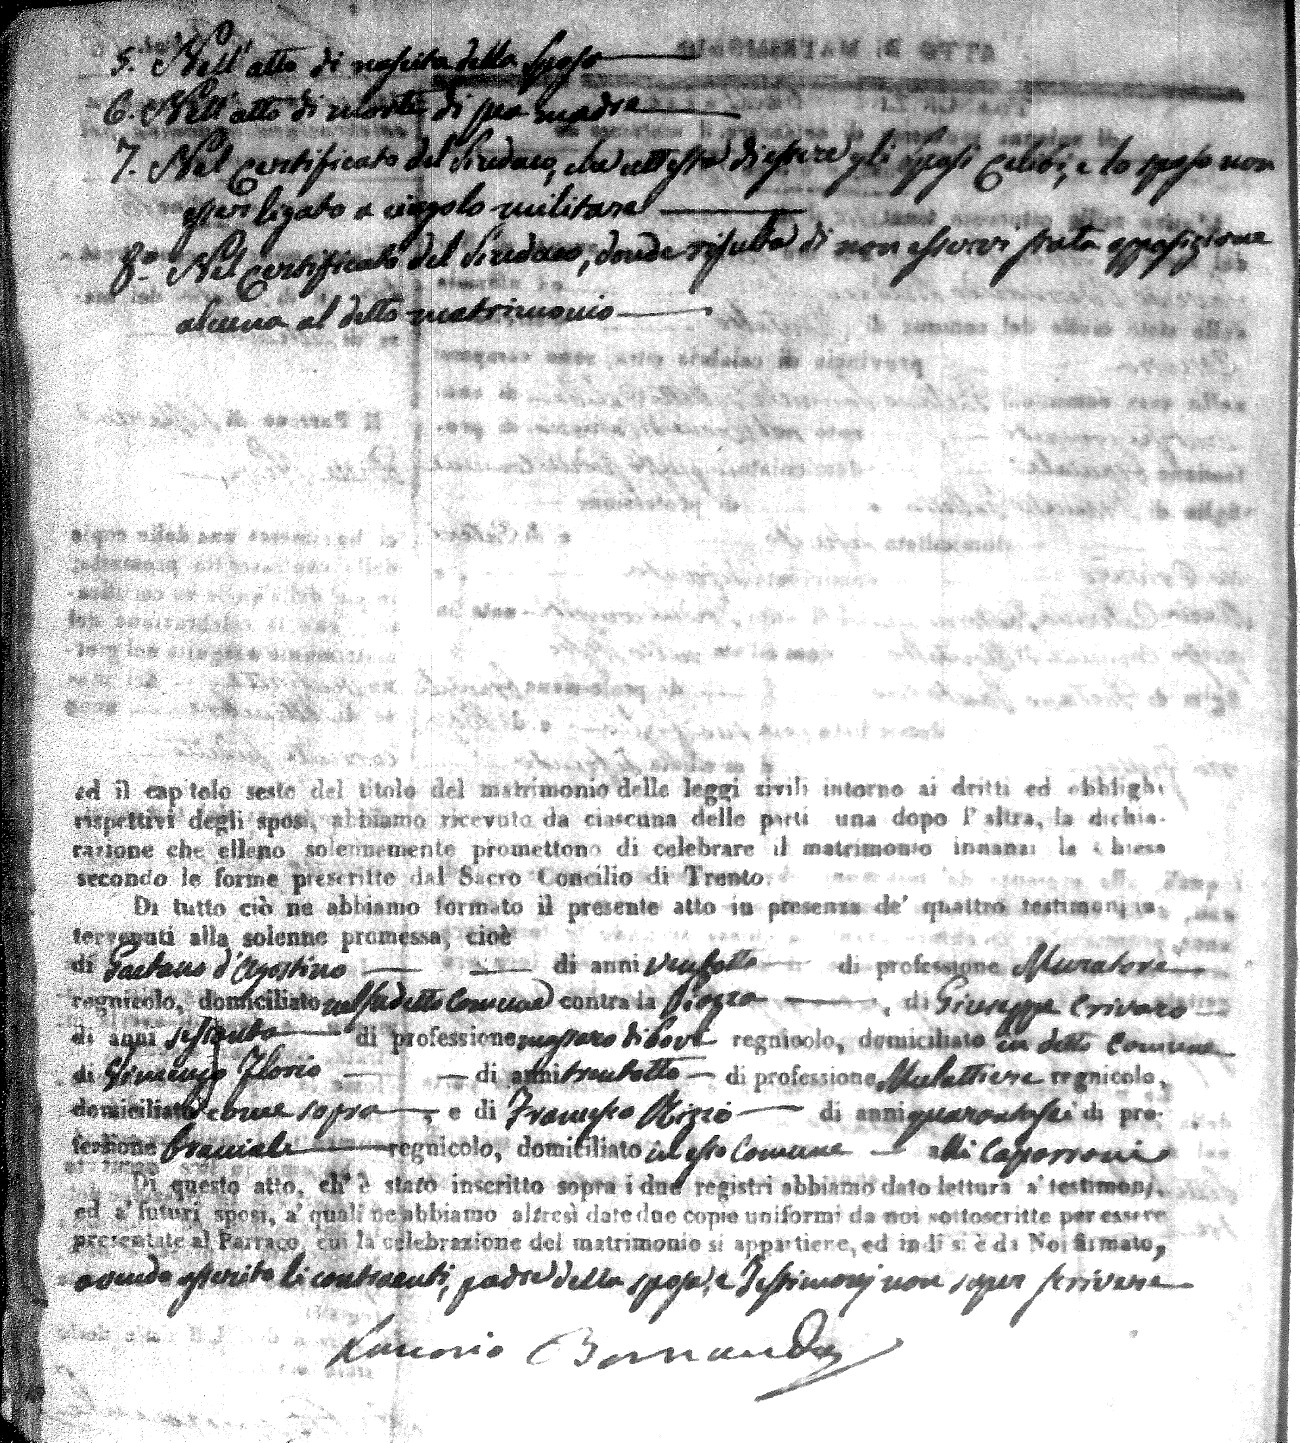 5. Nell'atto di nascita della sposa
6. Nell'atto di morte di sua madre
7. Nel certificato del Sindaco, che attesta di essere gli sposi celibi, e lo sposo non
esser ligato a cingolo militare
8. Nel certificato del Sindaco, donde risulta di non esservi stata opposizione
alcuna al detto matrimonio
ed il capitolo sesto del titolo del matrimonio delle leggi civili intorno ai dritti ed obblighi
rispettivi degli sposi, abbiamo ricevuto da ciascuna delle parti una dopo l'altra, la dichia-
razione che elleno solennemente promettono di celebrare il matrimonio innanzi la chiesa
secondo le forme prescritte dal Sacro Concilio di Trento.
Di tutto ciò ne abbiamo formato il presente atto in presenza de' quattro testimonj in-
tervenuti alla solenne promessa, cioè
di Gaetano d'Agostino di anni ventotto di professione Muratore
regnicolo, domiciliato nel sudetto Comune contra la Piazza, di Giuseppe Crivaro
di anni sessanta di professione massaro di bovi regnicolo, domiciliato in detto Comune
di Florio di anni trentotto di professione Mulattiere regnicolo,
domiciliato come sopra, e di Francesco Rizzo di anni quarantasei di pro-
fessione bracciale regnicolo, domiciliato in esso Comune alli Caporroni
Di questo atto, ch'è stato inscritto sopra i due registri abbiamo dato lettura a' testimonj,
ed a' futuri sposi, a' quali ne abbiamo altresì date due copie uniformi da noi sottoscritte per essere
presentate al Parraco, cui la celebrazione del matrimonio si appartiene, ed indi si è da Noi firmato,
avendo asserito li contraenti, padre della sposa, e Testimonj non saper scrivere